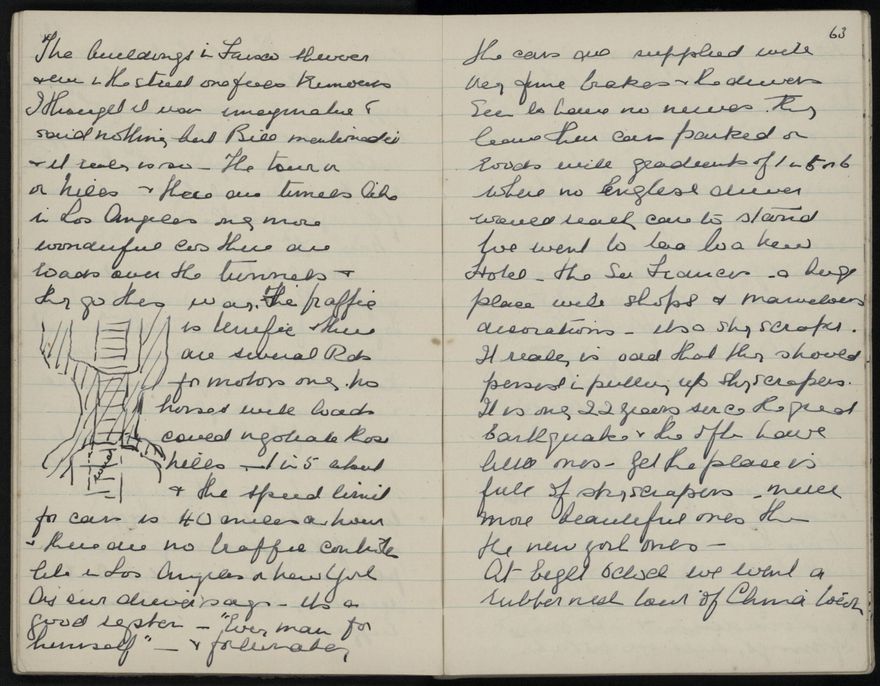 The buildings in Frisco shiver
even in the street one feels tremours
I thought it was imaginative &
said nothing but Bill mentioned it
& it really is so - The town is
on hills & there are tunnels like
in Los Angeles only more
wonderful as there are
roads over the tunnels &
they go this way. The traffic
is terrific there
are several Rds
for motors only. No
horses with loads
could negotiate those
hills - 1 in 5 about
& the speed limit
for cars is 40 miles an hour
& there are no traffic controls
like in Los Angeles or New York
As our driver says - its a
good system - "Every man for
himself" - & fortunately
63
the cars are supplied with
very fine brakes & the drivers
seem to have no nerves. They
leave their cars parked on
roads with gradients of 1 in 5 or 6
where no English driver
would really care to stand
We went to tea to a new
Hotel - the Sir Francis - a huge
place with shops & marvelous
decorations - its a sky scraper.
It really is odd that they should
persist in putting up skyscrapers.
It is only 22 years since the great
Earthquake & they often have
little ones - yet the place is
full of skyscrapers - much
more beautiful ones than
the new york ones -
At Eight oclock we went a
rubberneck tour of China town